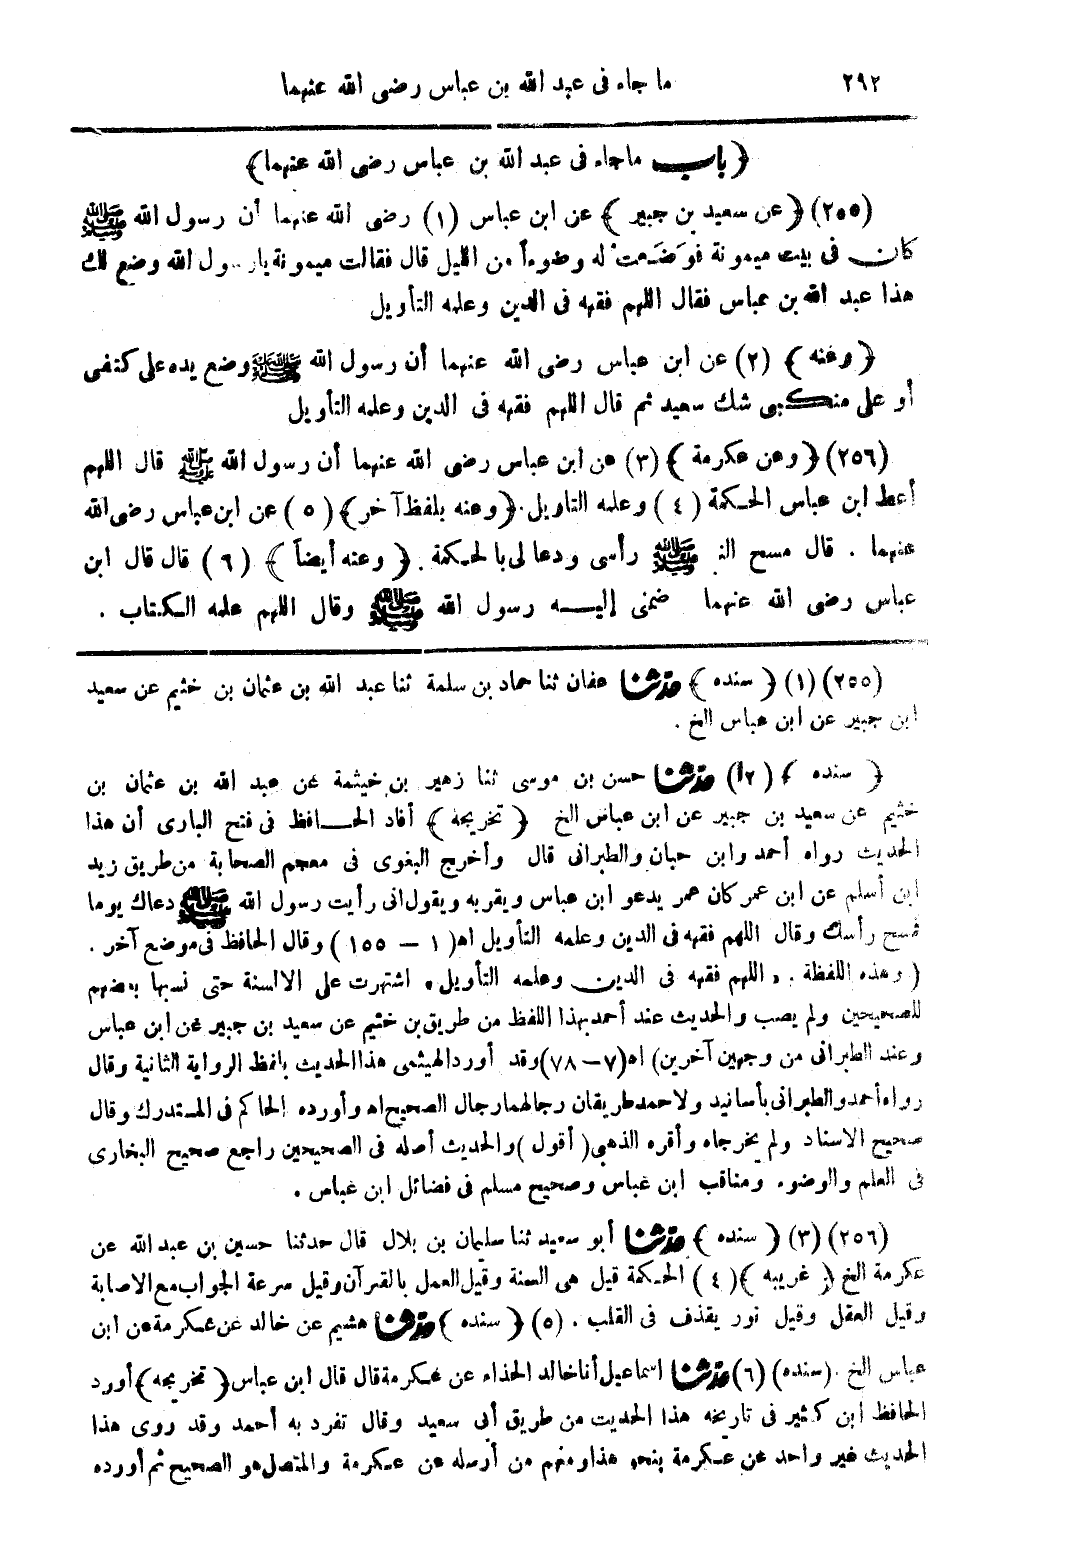 ٢٩٢ ما جاء فى عبد الله بن عباس رضى الله عنهما
﴿ باب ماجاء فى عبد الله بن عباس رضى الله عنهما﴾
(٢٥٥) ﴿ عن سعيد بن جبير ﴾ عن ابن عباس (١) رضى الله عنهما أن رسول الله ﷺ
كان فى بيت ميمونة فوَضَعت له وضوءاً من الليل قال فقالت ميمونة يارسول الله وضع لك
هذا عبد الله بن عباس فقال اللهم فقهه فى الدين وعلمه التأويل
﴿ وعنه ﴾ (٢) عن ابن عباس رضى الله عنهما أن رسول الله ﷺ وضع يده على كتفى
أو على منكبى شك سعيد ثم قال اللهم فقهه فى الدين وعلمه التأويل
(٢٥٦) ﴿ وعن عكرمة ﴾ (٣) عن ابن عباس رضى الله عنهما أن رسول الله ﷺ قال اللهم
أعط ابن عباس الحكمة (٤) وعلمه التاويل. ﴿ وعنه بلفظ آخر ﴾ (٥) عن ابن عباس رضى الله
عنهما . قال مسح النبى ﷺ رأسى ودعا لى بالحكمة . ﴿ وعنه أيضاً ﴾ (٦) قال قال ابن
عباس رضى الله عنهما ضمنى إليه رسول الله ﷺ وقال اللهم علمه الكتاب .
(٢٥٥) (١) ﴿ سنده ﴾ حدثنا عفان ثنا حماد بن سلمة ثنا عبد الله بن عثمان بن خثيم عن سعيد
ابن جبير عن ابن عباس الخ .
﴿ سنده ﴾ (٢) حدثنا حسن بن موسى ثنا زهير بن خيثمة عن عبد الله بن عثمان بن
خثيم عن سعيد بن جبير عن ابن عباس الخ ﴿ تخريجه ﴾ أفاد الحافظ فى فتح البارى أن هذا
الحديث رواه أحمد وابن حبان والطبرانى قال وأخرج البغوى فى معجم الصحابة من طريق زيد
ابن أسلم عن ابن عمر كان عمر يدعو ابن عباس ويقربه ويقول انى رأيت رسول الله ﷺ دعاك يوما
فمسح رأسك وقال اللهم فقهه فى الدين وعلمه التأويل اه (١ – ١٥٥) وقال الحافظ فى موضع آخر .
( وهذه اللفظة . « اللهم فقهه فى الدين وعلمه التأويل » اشتهرت على الالسنة حتى نسبها بعضهم
للصحيحين ولم يصب والحديث عند أحمد بهذا اللفظ من طريق بن خثيم عن سعيد بن جبير عن ابن عباس
وعند الطبرانى من وجهين آخرين) اه (٧ – ٧٨) وقد أورد الهيثمى هذا الحديث بلفظ الرواية الثانية وقال
رواه أحمد والطبرانى بأسانيد ولاحمد طريقان رجالهما رجال الصحيح اه وأورده الحاكم فى المستدرك وقال
صحيح الاسناد ولم يخرجاه وأقره الذهبى ( أقول ) والحديث أصله فى الصحيحين راجع صحيح البخارى
فى العلم والوضوء ومناقب ابن عباس وصحيح مسلم فى فضائل ابن عباس .
(٢٥٦) (٣) ﴿ سنده ﴾ حدثنا أبو سعيد ثنا سليمان بن بلال قال حدثنا حسين بن عبد الله عن
عكرمة الخ ﴿ غريبه ﴾ (٤) الحكمة قيل هى السنة وقيل العمل بالقرآن وقيل سرعة الجواب مع الاصابة
وقيل العقل وقيل نور يقذف فى القلب . (٥) ﴿ سنده ﴾ حدثنا هشيم عن خالد عن عكرمة عن ابن
عباس الخ . (سنده) (٦) حدثنا اسماعيل أنا خالد الحذاء عن عكرمة قال قال ابن عباس ﴿ تخريجه ﴾ أورد
الحافظ ابن كثير فى تاريخه هذا الحديث من طريق أبى سعيد وقال تفرد به أحمد وقد روى هذا
الحديث غير واحد عن عكرمة بنحو هذا ومنهم من أرسله عن عكرمة والمتصل هو الصحيح ثم أورده